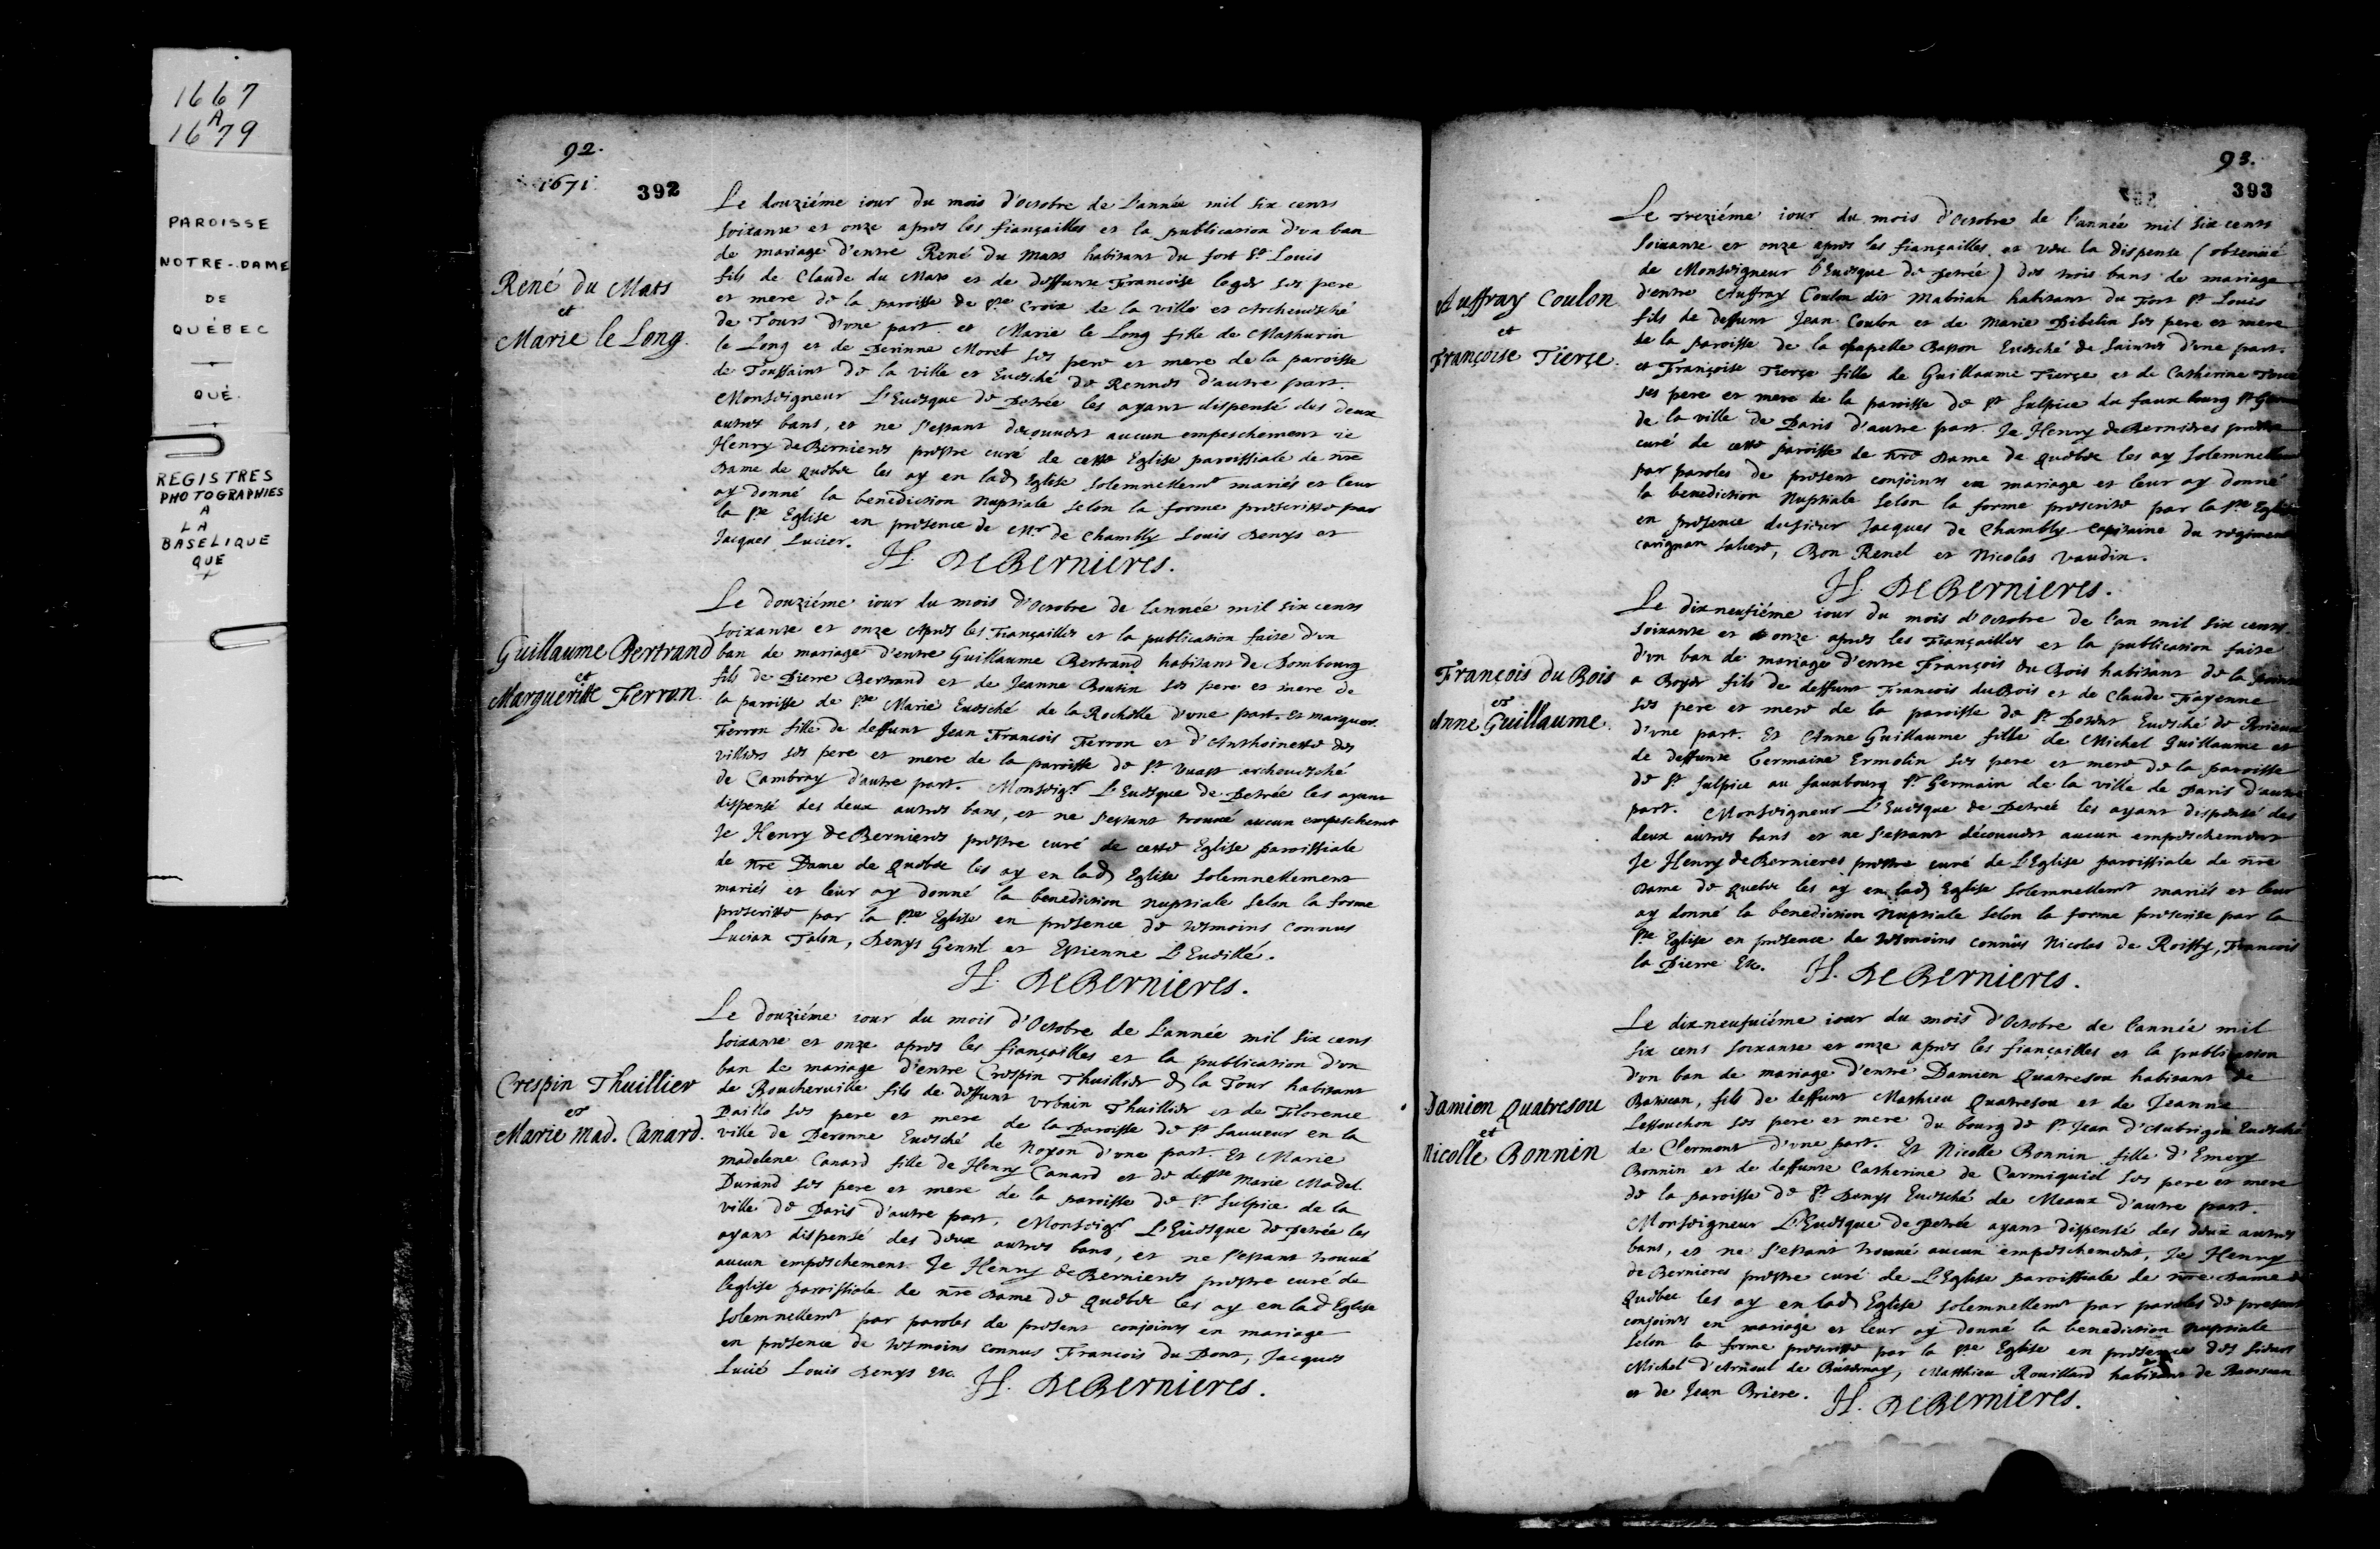 1667
A
1679
PAROISSE
NOTRE-DAME
DE
QUÉBEC
QUÉ.
REGISTRES
PHOTOGRAPHIES
A
LA
BASELIQUE
QUE
92.
1671
392
René du Mats
et
Marie le Long.
Le douziéme iour du mois d'Octobre de L'année mil six cents
soixante et onze apres les fiançailles et la publication d'vn ban
de mariage d'entre René du Mats habitant du fort St Louis
fils de Claude du Mats et de deffunte Francoise leger ses pere
et mere de la paroisse de Ste Croix de la ville et Archeuesché
de Tours d'vne part. et Marie le Long fille de Mathurin
le Long et de Perinne Moret ses pere et mere de la paroisse
de Toussaint de la ville et Euesché de Rennes d'autre part.
Monseigneur L'Euesque de Petrée les ayant dispensé des deux
autres bans, et ne s'estant découuert aucun empeschement ie
Henry de Bernieres prestre curé de cette Eglise paroissiale de nre
Dame de Quebec les ay en lad Eglise solemnellemt mariés et leur
ay donné la benediction nuptiale selon la forme prescritte par
la Ste Eglise en presence de Mr. de Chambly Louis Denys et
Jacques Lucier.
H. DeBernieres.
Guillaume Bertrand
et
Margueritte Ferron.
Le douziéme iour du mois d'Octobre de lannée mil six cents
soixante et onze Apres les Fiançailles et la publication faite d'vn
ban de mariage d'entre Guillaume Bertrand habitant de Dombourg
fils de Pierre Bertrand et de Jeanne Boutin ses pere et mere de
la paroisse de Ste Marie Euesché de la Rochelle d'vne part. Et marguer.
Ferron fille de deffunt Jean Francois Ferron et d'Anthoinette des
villiers ses pere et mere de la paroisse de St Vuast archeuesché
de Cambray d'autre part. Monseigr L'Euesque de Petrée les ayant
dispensé des deux autres bans, et ne s'estant trouué aucun empeschemt
Je Henry de Bernieres prestre curé de cette Eglise paroissiale
de nre Dame de Quebec les ay en lad Eglise solemnellement
mariés et leur ay donné la benediction nuptiale selon la forme
prescritte par la Ste Eglise en presence de tesmoins connus
Lucian Talon, Denys Gentil et Estienne L'Eueillé.
H. DeBernieres.
Crespin Thuillier
et
Marie Mad. Canard.
Le douziéme iour du mois d'Octobre de L'année mil six cens
soixante et onze apres les fiançailles et la publication d'vn
ban de mariage d'entre Crespin Thuillier d la Tour habitant
de Boucherville fils de deffunt vrbain Thuillier et de Florence
Paille ses pere et mere de la Paroisse de St Sauueur en la
ville de Peronne Euesché de Noyon d'vne part. Et Marie
madelene Canard fille de Henry Canard et de deffte Marie Madel.
Durand ses pere et mere de la paroisse de St Sulpice de la
ville de Paris d'autre part, Monseigr L'Euesque de Petrée les
ayant dispensé des deux autres bans, et ne s'estant trouué
aucun empeschement. Je Henry de Bernieres prestre curé de
l'eglise paroissiale de nre Dame de Quebec les ay en lad Eglise
solemnellemt par paroles de present conjoints en mariage
en presence de tesmoins connus Francois du Pont, Jacques
Lucié Louis Denys Etc.
H. DeBernieres.
93.
393
Auffray Coulon
et
Françoise Tierçe.
Le treziéme iour du mois d'Octobre de l'année mil six cents
soixante et onze apres les fiançailles et veu la dispense (obtenüe
de Monseigneur L'Euesque de Petrée) des trois bans de mariage
d'entre Auffray Coulon dit Mabrian habitant du Fort St Louis
fils de deffunt Jean Coulon et de Marie Dibelin ses pere et mere
de la paroisse de la chapelle Baston Euesché de Saintes d'vne part.
et Françoise Tierçe fille de Guillaume Tierçe et de Catherine
ses pere et mere de la paroisse de St Sulpice du faux bourg St
de la ville de Paris d'autre part. Je Henry de Bernieres prestre
curé de cette paroisse de nre Dame de Quebec les ay solemnellem
par paroles de present conjoints en mariage et leur ay donné
la benediction nuptiale selon la forme prescrite par la Ste Eglise
en presence du sieur Jacques de Chambly Capitaine du regiment
carignan saliere, Bon Renel et Nicolas Vaudin.
H. DeBernieres.
Francois du Bois
et
Anne Guillaume.
Le dixneufiéme iour du mois d'Octobre de l'an mil six cents.
soixante et onze apres les Fiançailles et la publication faite
d'vn ban de mariage d'entre François du Bois habitant de la
a Boyer fils de deffunt Francois du Bois et de Claude Fayenne
ses pere et mere de la paroisse de St Euesché de
d'vne part. Et Anne Guillaume fille de Michel Guillaume et
de deffunte Germaine Ermolin ses pere et mere de la paroisse
de St Sulpice au fauxbourg St Germain de la ville de Paris d'autre
part. Monseigneur L'Euesque de Petrée les ayant dispensé des
deux autres bans et ne s'estant découuert aucun empeschement
Je Henry de Bernieres prestre curé de L'Eglise paroissiale de nre
Dame de Quebec les ay en lad Eglise solemnellemt mariés et leur
ay donné la benediction nuptiale selon la forme prescrite par la
Ste Eglise en presence de tesmoins connûs Nicolas de Roissy, Francois
la Pierre Etc.
H. DeBernieres.
Damien Quatresou
et
Nicolle Bonnin
Le dixneufuiéme iour du mois d'Octobre de l'année mil
six cens soixante et onze apres les fiançailles et la publication
d'vn ban de mariage d'entre Damien Quatresou habitant de
Batiscan, fils de deffunt Mathieu Quatresou et de Jeanne
Lestouchon ses pere et mere du bourg de St Jean d'Aubrigou Euesché
de Clermont d'vne part. Et Nicolle Bonnin fille d'Emery
Bonnin et de deffunte Catherine de Carmiquiel ses pere et mere
de la paroisse de St Denys Euesché de Meaux d'autre part.
Monseigneur L'Euesque de petrée ayant dispensé des deux autres
bans, et ne s'estant trouué aucun empeschement, Je Henry
de Bernieres prestre curé de L'Eglise paroissiale de nre Dame de
Quebec les ay en lad Eglise solemnellemt par paroles de present
conjoints en mariage et leur ay donné la benediction nuptiale
selon la forme prescritte par la Ste Eglise en presence des sieurs
Michel d'Arnoul de , Matthieu Rouillard habitant de Batiscan
et de Jean Briere.
H. DeBernieres.